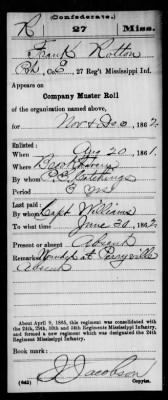 (Confederate.)
R 27 Miss.
Frank Rotton
Co. E, 27 Reg't Mississippi Inf.
Appears on
Company Muster Roll
of the organization named above,
for Nov & Dec, 1862.
Enlisted:
When Aug 20, 1861.
Where
By whom
Period 3 yrs
Last paid:
By whom Capt Williams
To what time June 30, 1862.
Present or absent Absent
Remarks: Wounded at Perryville
Absent
About April 9, 1865, this regiment was consolidated with
the 24th, 29th, 30th and 34th Regiments Mississippi Infantry,
and formed a new regiment which was designated the 24th
Regiment Mississippi Infantry.
Book mark:
J Jacobson
(642) Copyist.